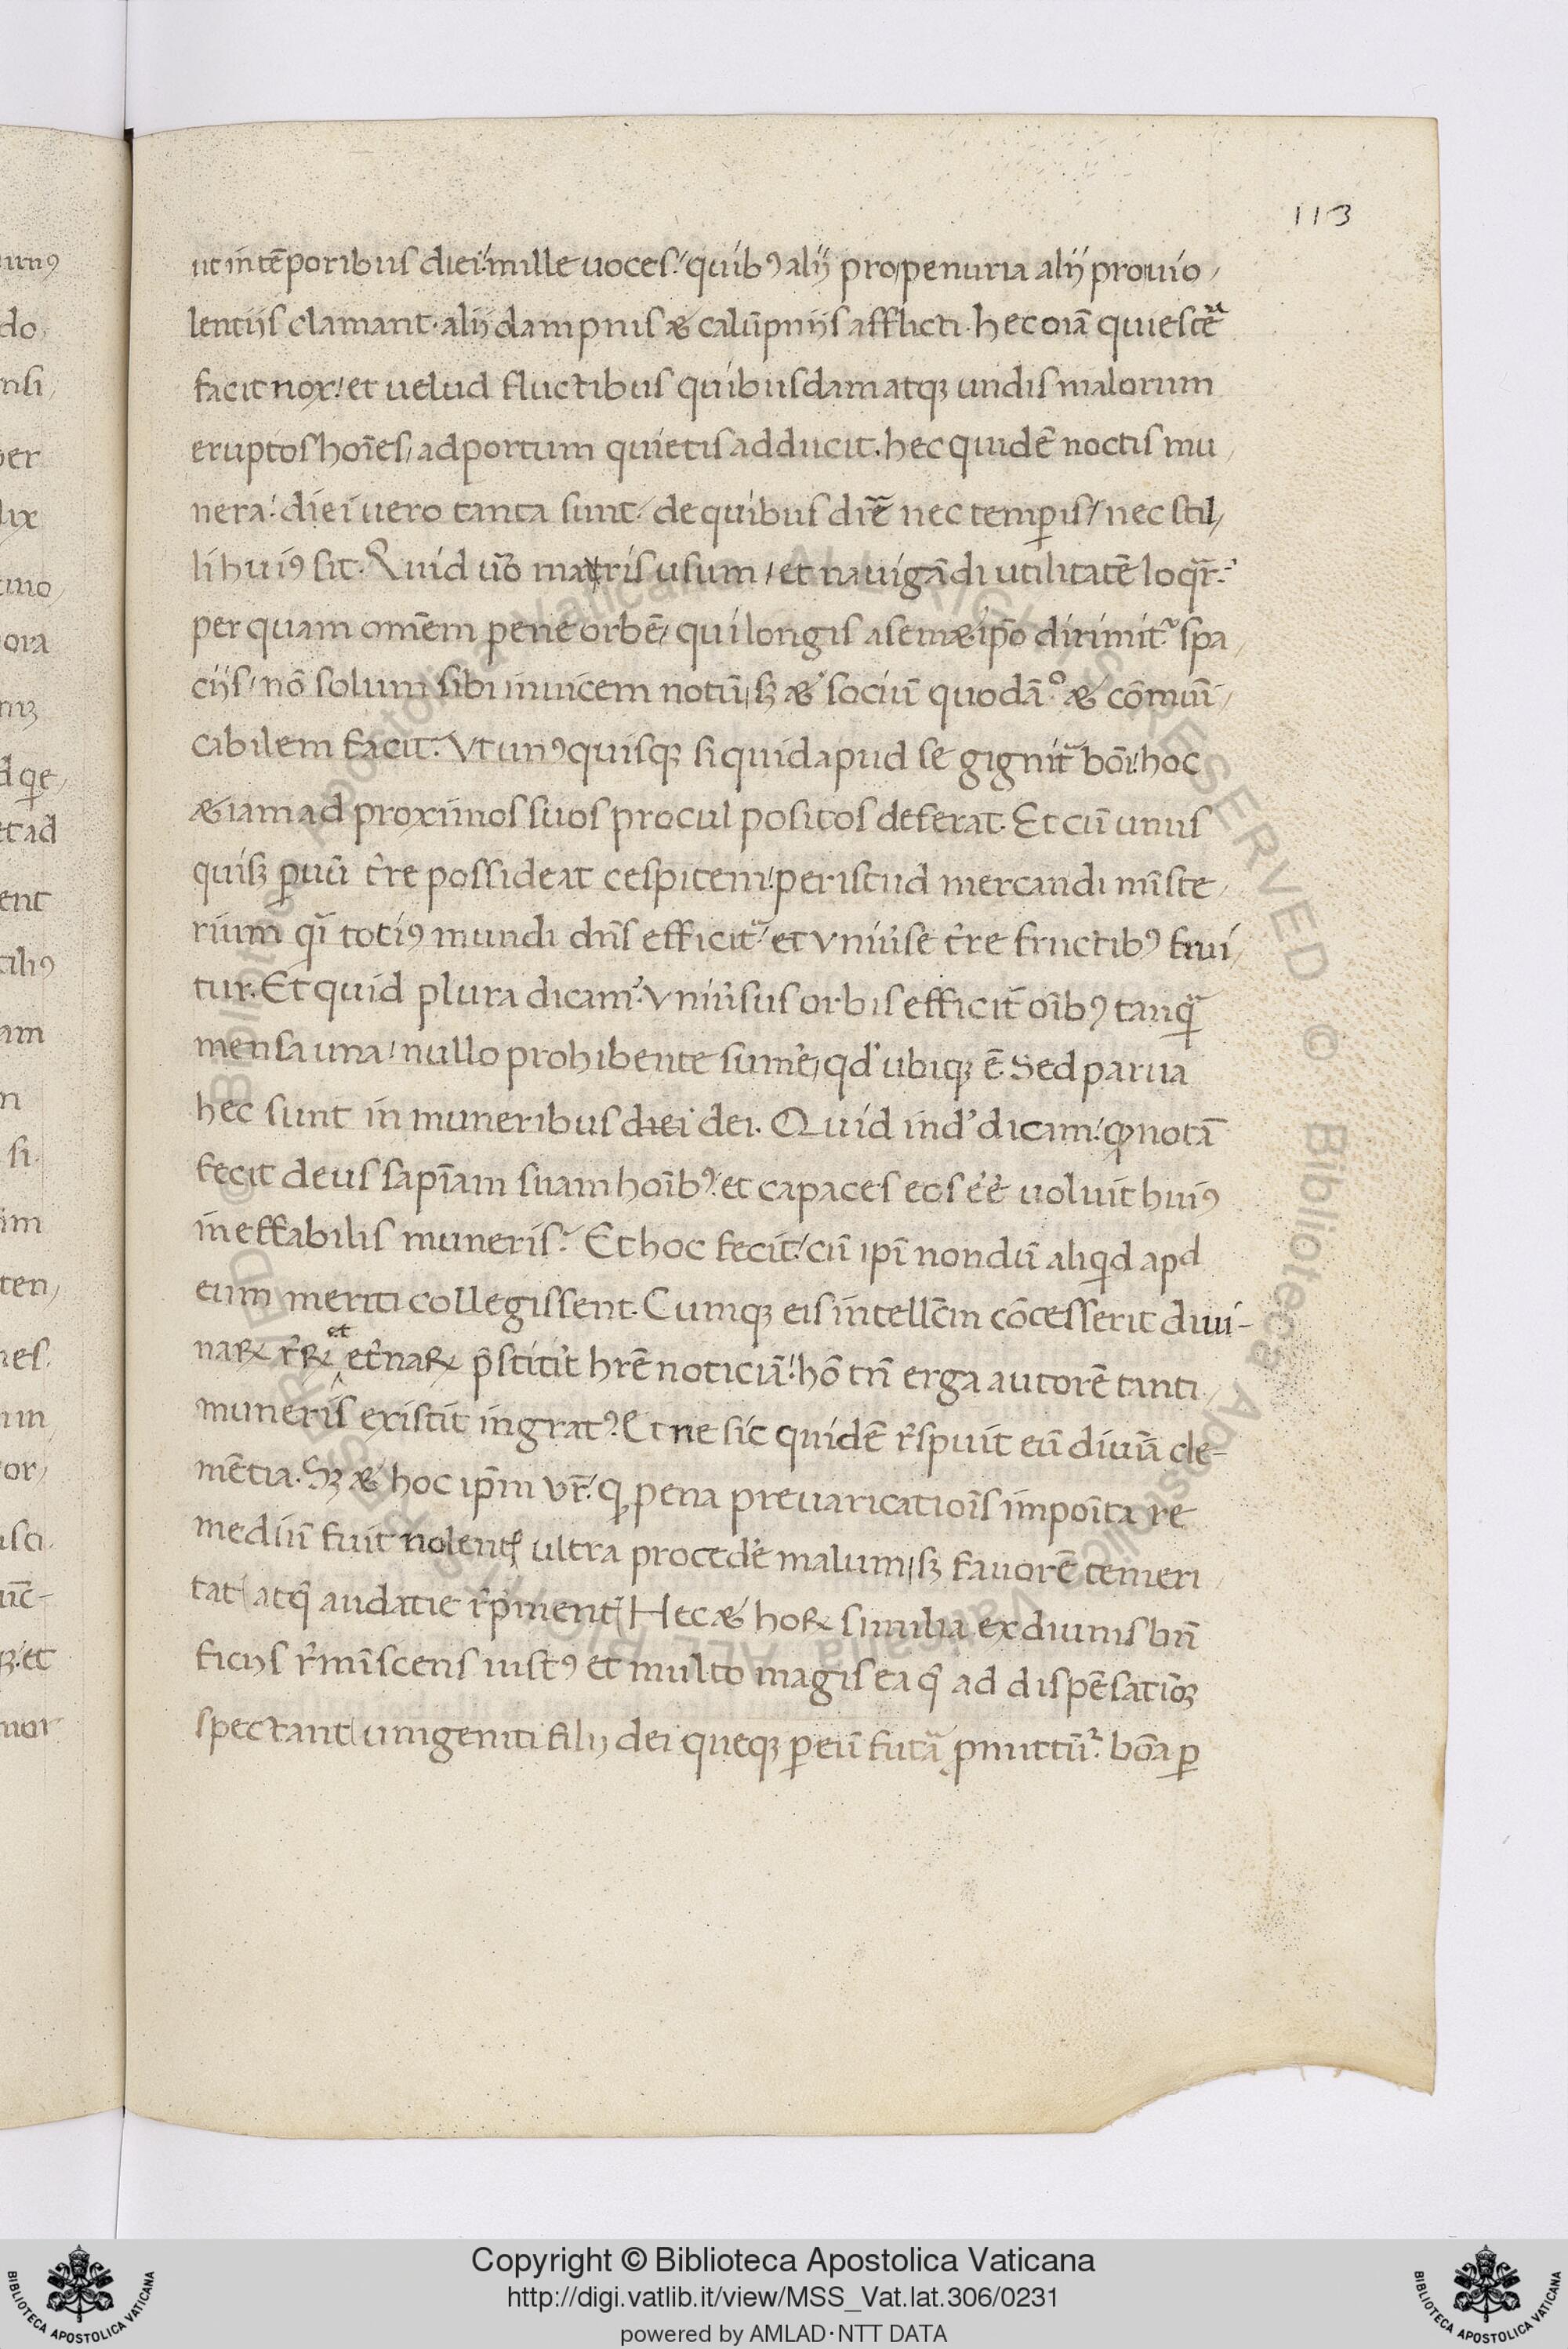 113
ut in tēporibus diei: mille uoces: quibꝰ alij pro penuria alij pro uio,
lentijs clamant. alij dampnis & calūpnijs afflicti. hec oīa quiesce᷑
facit nox: et uelud fluctibus quibusdam atqꝫ undis malorum
eruptos hoīes, ad portum quietis adducit. hec quidē noctis mu,
nera: diei uero tanta sunt, de quibus dīre nec temꝑis, nec stil,
li huiꝰ sit. Quid u̅o maris usum, et nauigādi utilitatē loqr̄.
per quam omēm pene orbē, qui longis a semet ip̄o dirimit᷑ spa,
cijs, nō solum sibi inuicem notū, sꝫ & sociū quodāº & cōmuni,
cabilem facit. Vt unꝰquisqꝫ si quid apud se gignit᷑ boni, hoc
&iam ad proximos suos procul positos deferat. Et cū unus
quisqꝫ ꝑuū t̄re possideat cespitem: per istud mercandi mīste,
rium qī totiꝰ mundi dn̄s efficit᷑, et uniūse t̄re fructibꝰ frui,
tur. Et quid plura dicam? Vniūsus orbis efficit᷑ oībꝰ tanqͣ
mensa una, nullo prohibente sum̄e, qd' ubiqꝫ ē. Sed parua
hec sunt in muneribus diei dei. Quid ind' dicam: qꝙ notā
fecit deus sapīam suam hoībꝰ: et capaces eos eē uoluit huiꝰ
ineffabilis muneris? Et hoc fecit: cū ipī nondū aliqd apd
eum meriti collegissent. Cumqꝫ eis intellc̄m cōcesserit diui-
naꝝ r̄ꝝ et et̄naꝝ p̄stitit hr̄e noticiā: hō tn̄ erga autorē tanti
muneris existit ingratꝰ. Et ne sic quidē r̄spuit eū diuīa cle-
mētia. Sꝫ & hoc ip̄m ur̄: qꝙ pena preuaricatiōis impoīta re
mediū fuit nolentꝭ ultra proced̄e malum, sꝫ fauorē temeri
tatꝭ atqꝫ audatie r̄p̄mentꝭ. Hec & hoꝝ similia ex diuinis bn̄
ficijs r̄mīscens iustꝰ et multo magis ea q̄ ad dispēsatiōꝫ
spectant unigeniti filij dei queqꝫ ꝑ eū futā ꝓmittūt᷑ bōa ꝑ
Copyright © Biblioteca Apostolica Vaticana
http://digi.vatlib.it/view/MSS_Vat.lat.306/0231
powered by AMLAD·NTT DATA